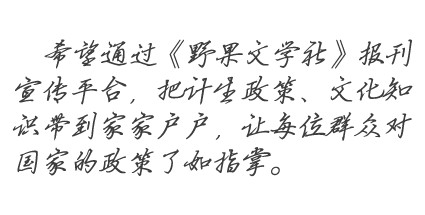 希望通过《野果文学社》报刊
宣传平台，把计生政策、文化知
识带到家家户户，让每位群众对
国家的政策了如指掌。